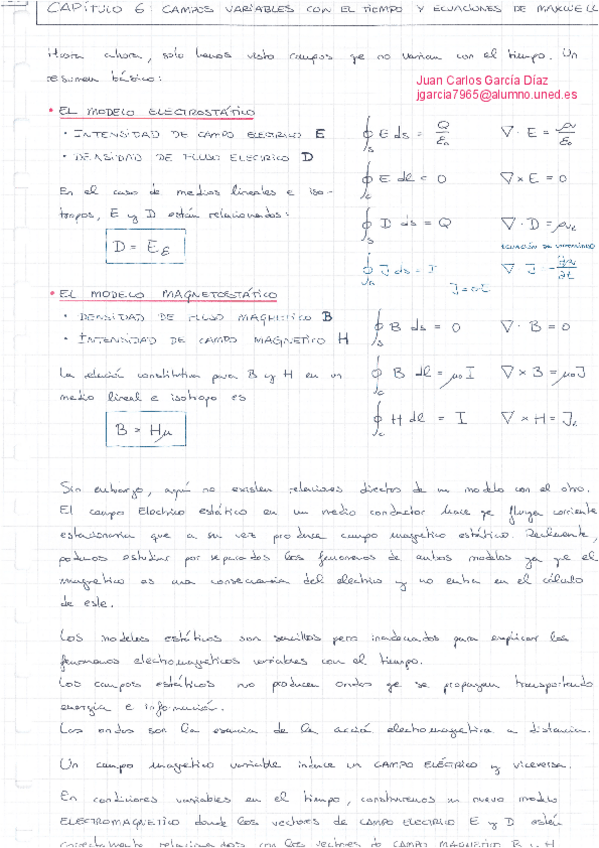 CAPÍTULO 6: CAMPOS VARIABLES CON EL TIEMPO Y ECUACIONES DE MAXWELL
Hasta ahora, solo hemos visto campos que no varían con el tiempo. Un
resumen básico:
Juan Carlos García Díaz
jgarcia7965@alumno.uned.es
• EL MODELO ELECTROSTÁTICO
• INTENSIDAD DE CAMPO ELECTRICO E
• DENSIDAD DE FLUJO ELECTRICO D
∮s E ds = Q/ε₀ ∇· E = ρv/ε₀
∮c E dl = 0 ∇× E = 0
En el caso de medios lineales e iso-
tropos, E y D están relacionados:
D = Eε
∮s D ds = Q ∇· D = ρv
ECUACIÓN DE CONTINUIDAD
∮s J ds = I ∇ J = -∂ρv/∂t
• EL MODELO MAGNETOSTÁTICO
• DENSIDAD DE FLUJO MAGNETICO B
• INTENSIDAD DE CAMPO MAGNETICO H
∮s B ds = 0 ∇· B = 0
La relación constitutiva para B y H en un
medio lineal e isotropo es
B = Hμ
∮c B dl = μ₀I ∇× B = μ₀J
∮c H dl = I ∇× H = J
Sin embargo, aquí no existen relaciones directas de un modelo con el otro.
El campo Electrico estático en un medio conductor hace qe fluya corriente
estacionaria que a su vez produce campo magnetico estático. Realmente,
podemos estudiar por separados los fenomenos de ambos modelos ya qe el
magnetico es una consecuencia del electrico y no entra en el cálculo
de este.
Los modelos estáticos son sencillos pero inadecuados para explicar los
fenomenos electromagneticos variables con el tiempo.
Los campos estáticos no producen ondas qe se propagan transportando
energía e información.
Las ondas son la esencia de la acción electromagnetica a distancia.
Un campo magnetico variable induce un CAMPO ELÉCTRICO y viceversa.
En condiciones variables en el tiempo, construiremos un nuevo modelo
ELECTROMAGNETICO donde los vectores de CAMPO ELECTRICO E y D están
correctamente relacionados con los vectores de CAMPO MAGNETICO B y H.